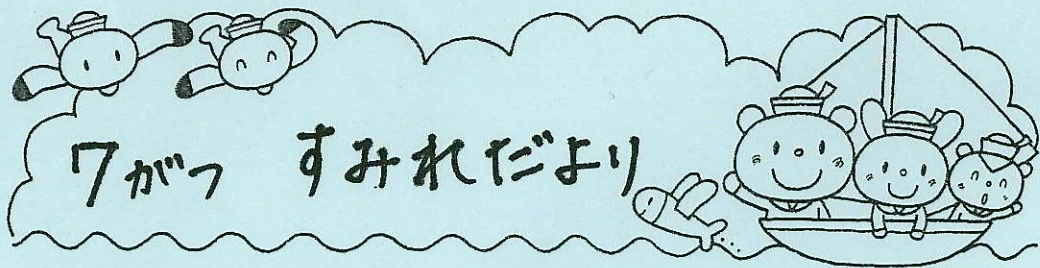 7がつ すみれだより